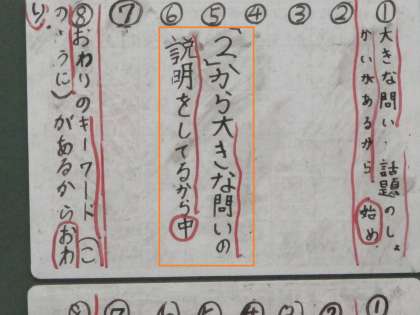 ①
大きな問い、話題のしょ
かいがあるから始め
②
③
④
⑤
「2」から大きな問いの
⑥
説明をしてるから中
⑦
⑧
おわりのキーワード(こ
のように)があるからおわ
り。
① ② ③ ④ ⑤ ⑥ ⑦ ⑧